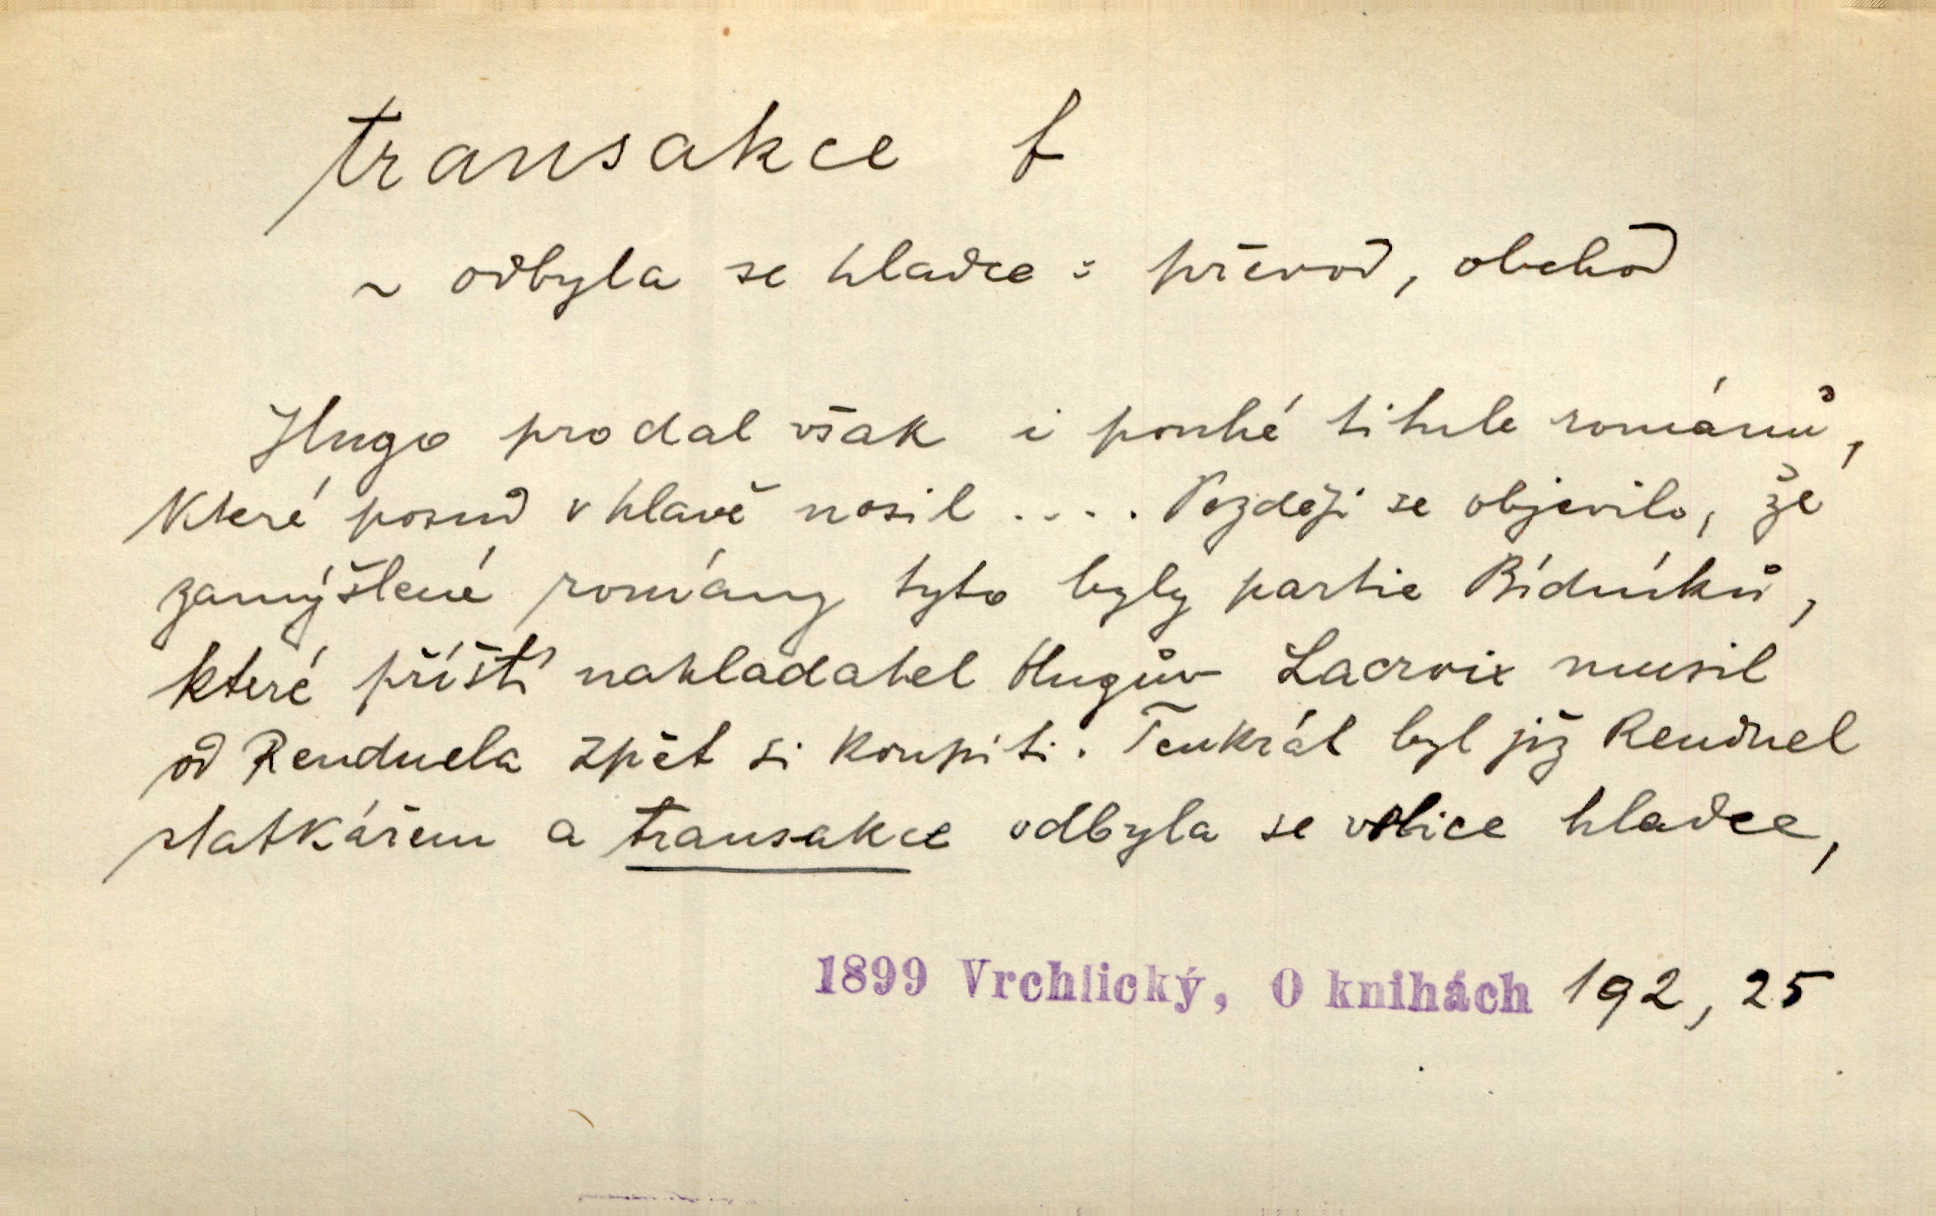 transakce f
~ odbyla se hladce : převod, obchod
Hugo prodal však i pouhé titule románů,
které posud v hlavě nosil .... Později se objevilo, že
zamýšlené romány tyto byly partie Bídníků,
které příští nakladatel Hugův Lacroix musil
od Renduela zpět si koupiti. Tenkrát byl již Renduel
statkářem a transakce odbyla se velice hladce,
1899 Vrchlický, O knihách 192, 25